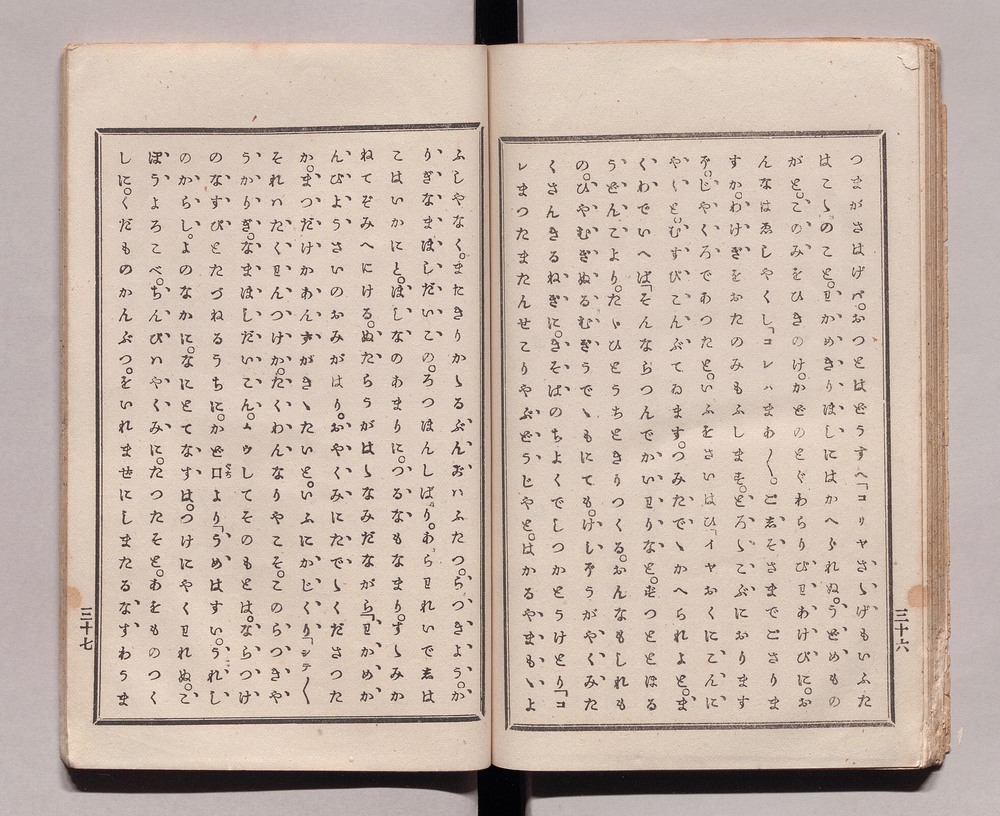 つまがさはげバ。おつとはどうすへ「コリヤさゝげもいふた
はこゝのこと。わかめきりほしにはかへられぬ。うどめもの
がと。このみをひきのけ。かどのとぐわらりびわあけびに。お
んなはゑしやくし「コレハまあ〱。ごゑそさままでござりま
すか。わけぎをおたのみもふしまする。ところゝこぶにおります
やくと。むすびこんぶてゐます。つみたでゝかへられよと。ま
くわでいへば「そんならつんでかいわりなと。まつととほる
うどんこより。たゝひとうちときりつくる。おんなもしれも
の。ひやむぎぬるむぎうでゝもにても。けしやうがやくみた
くさんきるねぎに。きそばのちよくでしつかとうけとり「コ
レまつたまたんせこりやぶどうじやと。はかるやまもゝよ
三十六
ふしやなく。またきりかゝるぶんおハふたつ。らつきよう。か
りぎなまぼしだいこの。ろつほんしばり。あらわれいでゑは
こはいかにと。ほしなのあまりに。つるなもなまり。すゝみか
ねてぞみへにける。ぬたらうがはゝなみだながら「わかめか
んぴようさいのおみがはり。おやくみにたでゝくださつた
か。まつだけかあんずがきゝたいと。いふにかじくり「シテ〱
それハたくわんつけか。たくわんなりやこそ。このらつきや
うかりぎ。なまほしだいこん。ムウしてそのもとは。ならつけ
のなすびとたづねるうちに。かど口より「うめはすい。うれし
のからし。よのなかに。なにとてなすは。つけにやくわれぬ。こ
ぼうよろこべ。ちんぴハやくみに。たつたそと。あをものつく
しに。くだものかんぶつ。をいれませにしまたるなすわうま
三十七